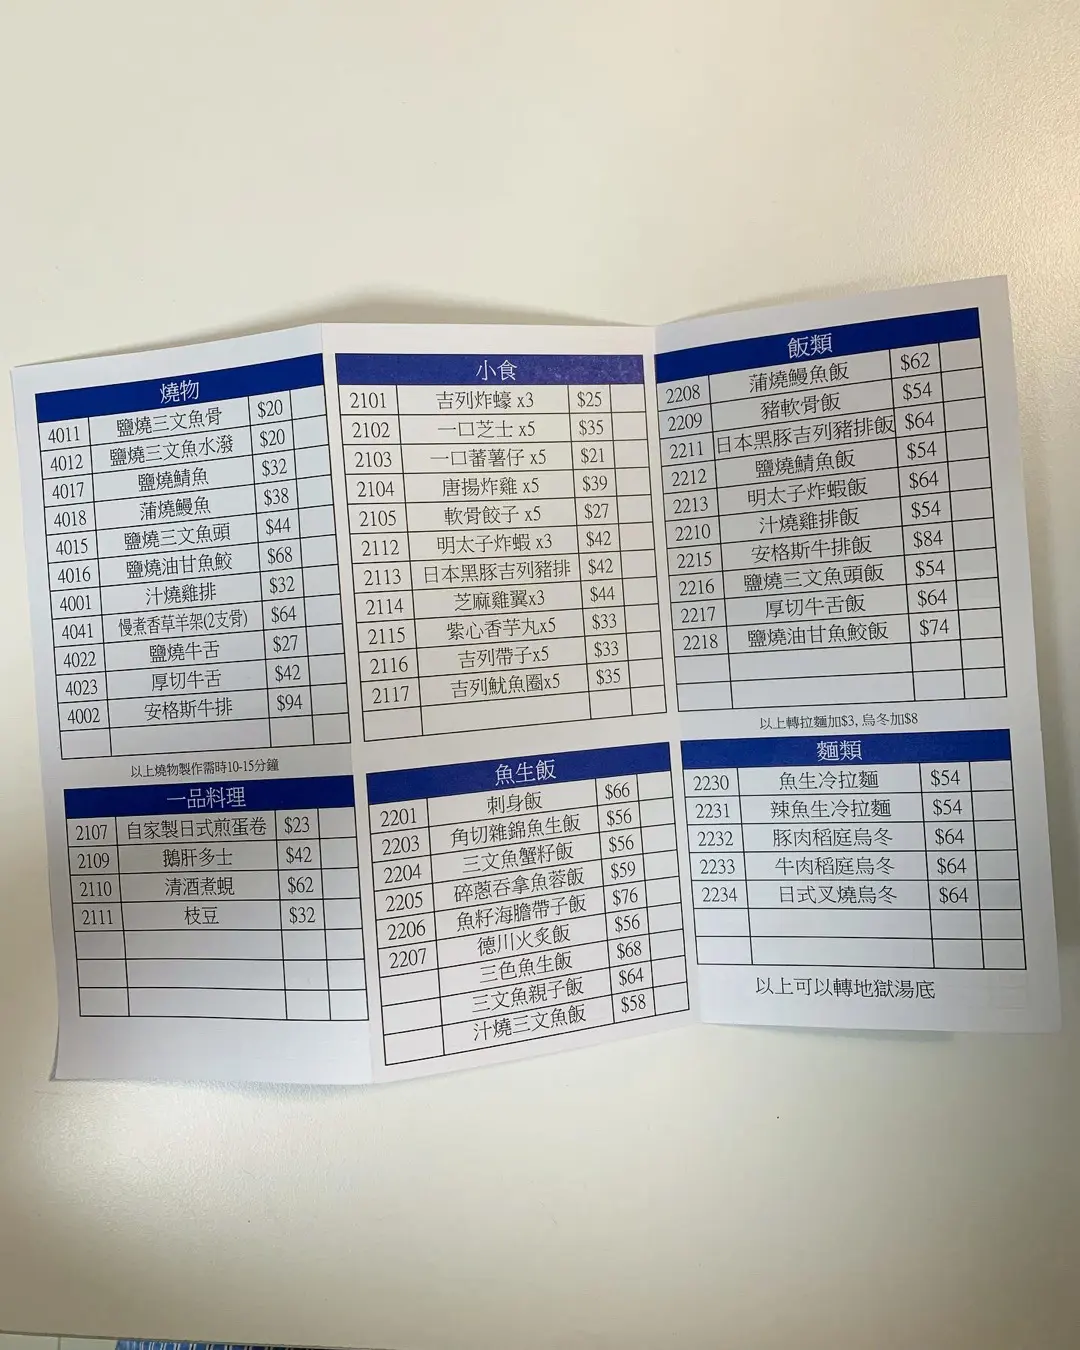 燒物
4011 鹽燒三文魚骨 $20
4012 鹽燒三文魚水潑 $20
4017 鹽燒鯖魚 $32
4018 蒲燒鰻魚 $38
4015 鹽燒三文魚頭 $44
4016 鹽燒油甘魚鮫 $68
4001 汁燒雞排 $32
4041 慢煮香草羊架(2支骨) $64
4022 鹽燒牛舌 $27
4023 厚切牛舌 $42
4002 安格斯牛排 $94
以上燒物製作需時10-15分鐘
一品料理
2107 自家製日式煎蛋卷 $23
2109 鵝肝多士 $42
2110 清酒煮蜆 $62
2111 枝豆 $32
小食
2101 吉列炸蠔 x3 $25
2102 一口芝士 x5 $35
2103 一口蕃薯仔 x5 $21
2104 唐揚炸雞 x5 $39
2105 軟骨餃子 x5 $27
2112 明太子炸蝦 x3 $42
2113 日本黑豚吉列豬排 $42
2114 芝麻雞翼x3 $44
2115 紫心香芋丸x5 $33
2116 吉列帶子x5 $33
2117 吉列魷魚圈x5 $35
魚生飯
2201 刺身飯 $66
2203 角切雜錦魚生飯 $56
2204 三文魚蟹籽飯 $56
2205 碎蔥吞拿魚蓉飯 $59
2206 魚籽海膽帶子飯 $76
2207 德川火炙飯 $56
三色魚生飯 $68
三文魚親子飯 $64
汁燒三文魚飯 $58
飯類
2208 蒲燒鰻魚飯 $62
2209 豬軟骨飯 $54
2211 日本黑豚吉列豬排飯 $64
2212 鹽燒鯖魚飯 $54
2213 明太子炸蝦飯 $64
2210 汁燒雞排飯 $54
2215 安格斯牛排飯 $84
2216 鹽燒三文魚頭飯 $54
2217 厚切牛舌飯 $64
2218 鹽燒油甘魚鮫飯 $74
以上轉拉麵加$3, 烏冬加$8
麵類
2230 魚生冷拉麵 $54
2231 辣魚生冷拉麵 $54
2232 豚肉稻庭烏冬 $64
2233 牛肉稻庭烏冬 $64
2234 日式叉燒烏冬 $64
以上可以轉地獄湯底